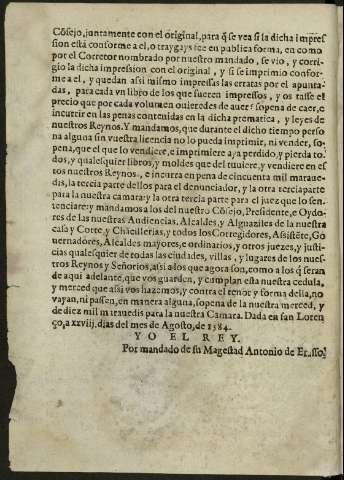 Cõsejo, juntamente con el original, para q̃ se vea si la dicha impres
sion està conforme a el, o traygays fee en publica forma, en como
por el Corretor nombrado por nuestro mandado, se vio, y corri-
gio la dicha impression con el original, y si se imprimio confor-
me a el, y quedan assi mismo impressas las erratas por el apunta-
das, para cada vn libro de los que fueren impressos, y os tasse el
precio que por cada volumen ouieredes de auer: sopena de caer, e
incurrir en las penas contenidas en la dicha prematica, y leyes de
nuestros Reynos. Y mandamos, que durante el dicho tiempo perso
na alguna sin vuestra licencia no lo pueda imprimir, ni vender, so-
pena, que el que lo vendiere, e imprimiere aya perdido, y pierda to-
dos, y qualesquier libros, y moldes que del tuuiere, y vendiere en es
tos nuestros Reynos, e incurra en pena de cincuenta mil maraue-
dis, la tercia parte dellos para el denunciador, y la otra tercia parte
para la nuestra camara: y la otra tercia parte para el juez que lo sen-
tenciare: y mandamos a los del nuestro Cõsejo, Presidente, e Oydo-
res de las nuestras Audiencias, Alcaldes, y Alguaziles de la nuestra
casa y Corte, y Chãcillerias, y todos los Corregidores, Assistẽte, Go
uernadores, Alcaldes mayores, e ordinarios, y otros juezes, y justi-
cias qualesquier de todas las ciudades, villas, y lugares de los nues-
tros Reynos y Señorios, assi a los que agora son, como a los q̃ seran
de aqui adelante, que vos guarden, y cumplan esta nuestra cedula,
y merced que assi vos hazemos, y contra el tenor y forma della, no
vayan, ni passen, en manera alguna, sopena de la nuestra merced, y
de diez mil marauedis para la nuestra Camara. Dada en san Loren
ço, a xxviij. dias del mes de Agosto, de 1584.
YO EL REY.
Por mandado de su Magestad Antonio de Erasso.